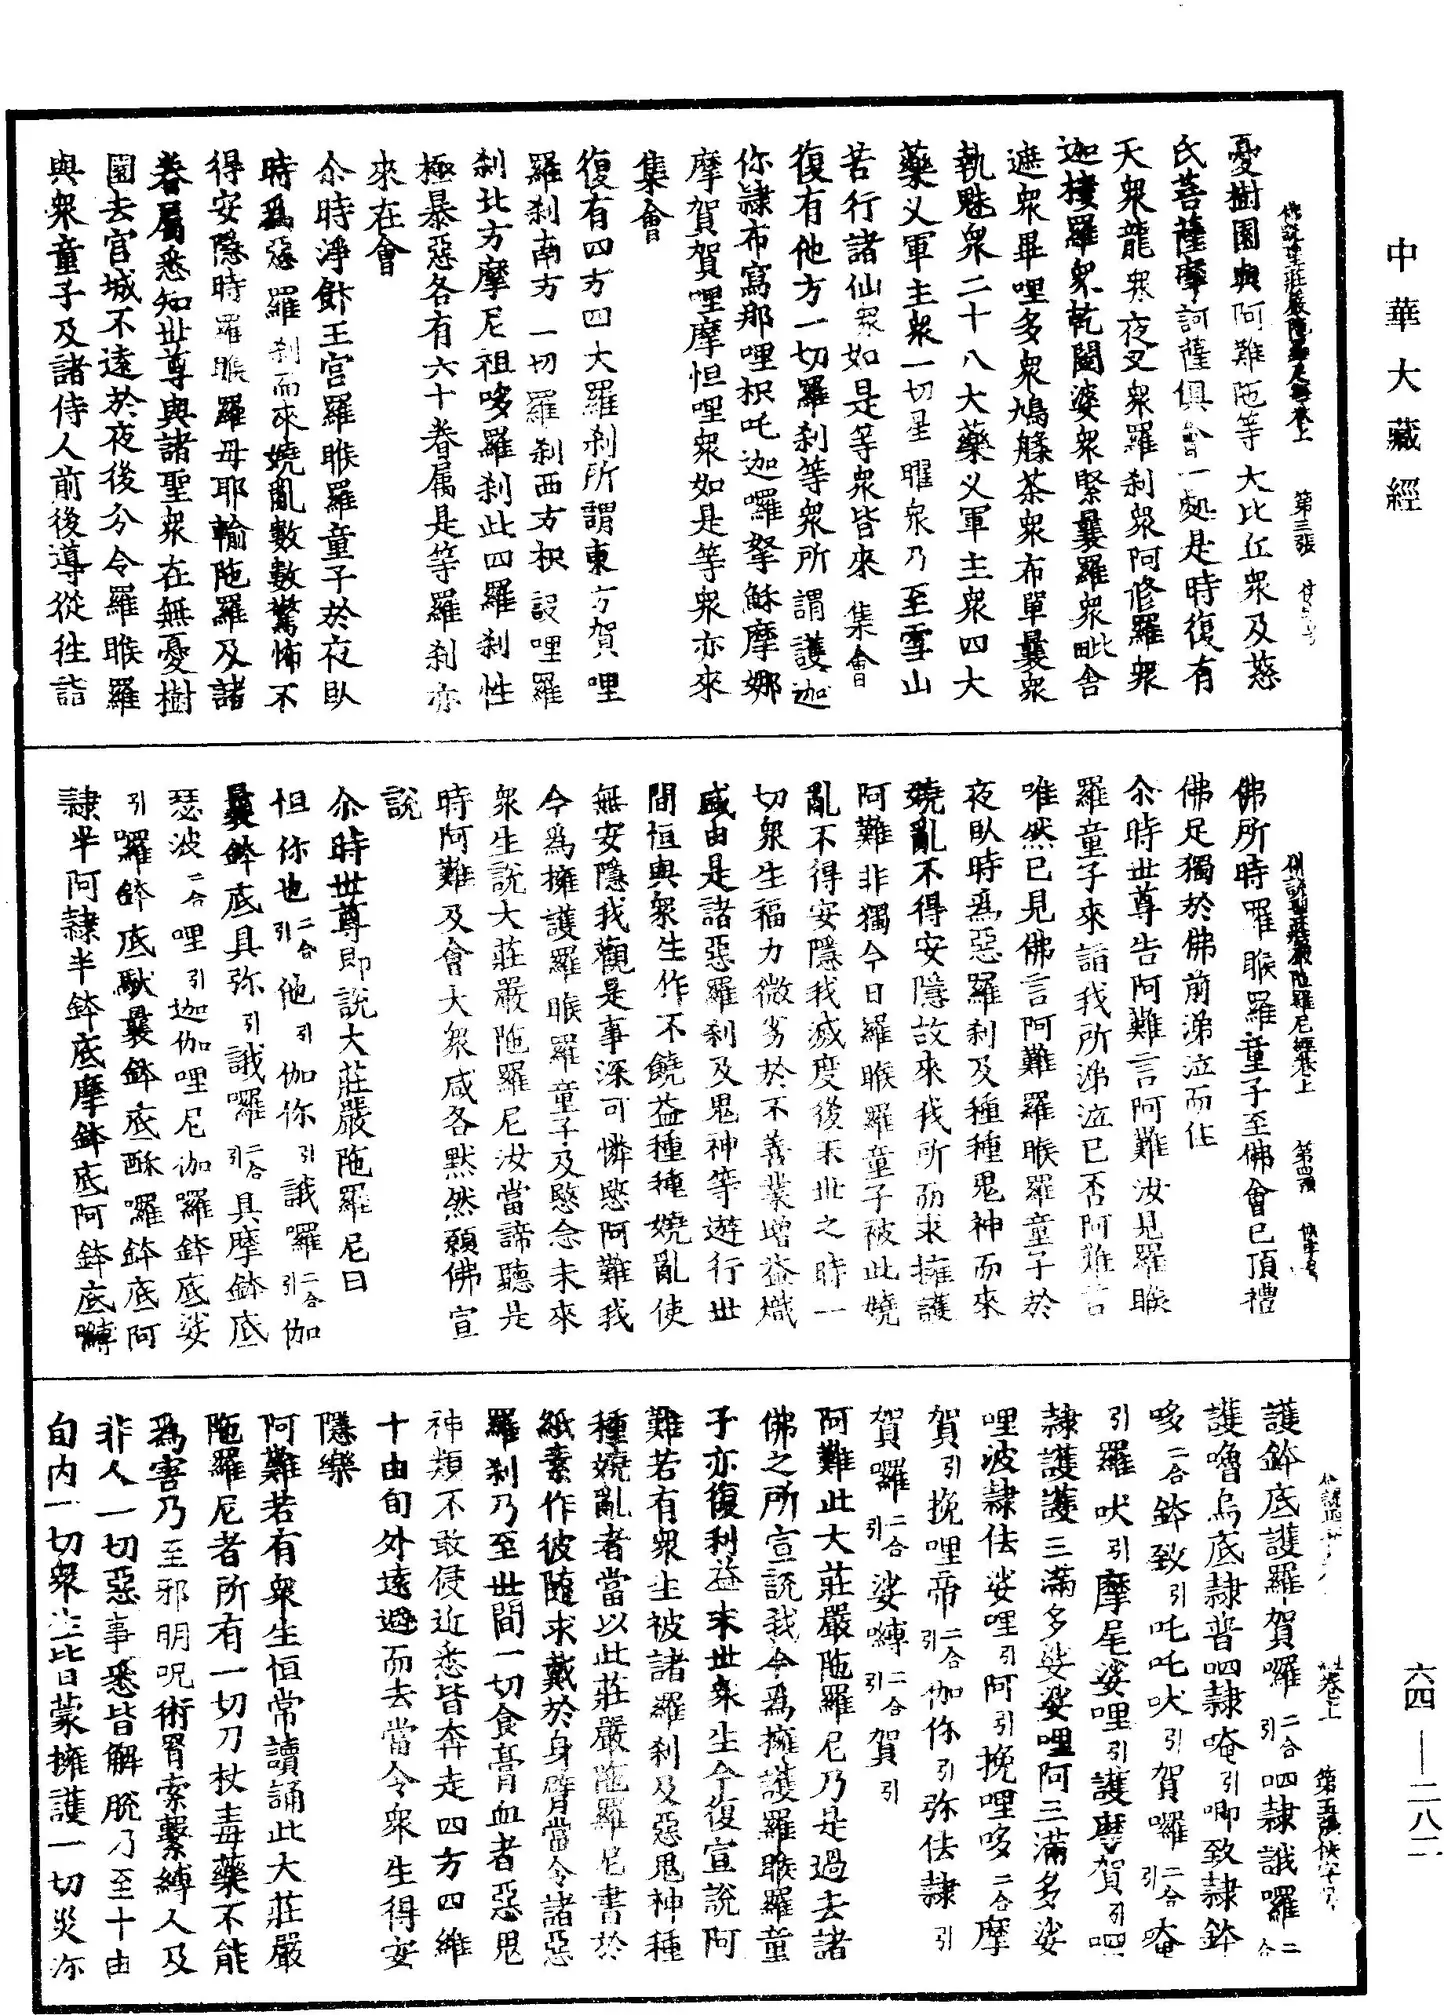 中華大藏經
憂樹園與阿難陁等大比丘衆及慈
氏菩薩摩訶薩俱會一處是時復有
天衆龍衆夜叉衆羅刹衆阿修羅衆
迦樓羅衆乾闥婆衆緊曩羅衆毗舍
遮衆畢哩多衆鳩槃茶衆布單曩衆
執魅衆二十八大藥叉軍主衆四大
藥叉軍主衆一切星曜衆乃至雪山
苦行諸仙衆如是等衆皆來集會
復有他方一切羅刹等衆所謂護迦
你隷布寫那哩枳吒迦囉拏穌摩娜
摩賀賀哩摩怛哩衆如是等衆亦來
集會
復有四方四大羅刹所謂東方賀哩
羅刹南方一切羅刹西方枳設哩羅
刹北方摩尼祖哆羅刹此四羅刹性
極暴惡各有六十眷属是等羅刹亦
來在會
尒時淨飰王宮羅睺羅童子於夜卧
時爲惡羅刹而來嬈亂數數驚怖不
得安隱時羅睺羅母耶輸陁羅及諸
眷屬悉知世尊與諸聖衆在無憂樹
園去宮城不遠於夜後分令羅睺羅
與衆童子及諸侍人前後導從徃詣
佛所時羅睺羅童子至佛會已頂禮
佛足獨於佛前涕泣而住
尒時世尊告阿難言阿難汝見羅睺
羅童子來詣我所涕泣已否阿難言
唯然已見佛言阿難羅睺羅童子於
夜卧時爲惡羅刹及種種鬼神而來
嬈亂不得安隱故來我所而求擁護
阿難非獨今日羅睺羅童子被此嬈
亂不得安隱我滅度後末世之時一
切衆生福力微劣於不善業增益熾
盛由是諸惡羅刹及鬼神等遊行世
間恒與衆生作不饒益種種嬈亂使
無安隱我觀是事深可憐愍阿難我
今爲擁護羅睺羅童子及愍念未來
衆生說大莊嚴陁羅尼汝當諦聽是
時阿難及會大衆咸各默然願佛宣
說
尒時世尊即說大莊嚴陁羅尼曰
怛你也二合引他引伽你引誐囉二合引伽
曩鉢底具弥引誐囉二合引具摩鉢底
瑟波二合哩引迦伽哩尼伽羅鉢底娑
引囉鉢底馱曩鉢底酥囉鉢底阿
隷半阿隷半鉢底摩鉢底阿鉢底嚩
護鉢底護羅賀囉二合引呬隷誐囉二合
護嚕烏底隷普呬隷唵引唧致隷鉢
哆二合鉢致引吒吒吠引賀囉二合引奄
引羅吠引摩尾娑哩引護摩賀引呬
隷護護三滿多娑娑哩阿三滿多娑
哩波隷佉娑哩引阿引挽哩哆二合摩
賀引挽哩帝二合引伽你引弥佉隷引
賀囉二合引娑嚩二合引賀引
阿難此大莊嚴陁羅尼乃是過去諸
佛之所宣說我今爲擁護羅睺羅童
子亦復利益末世衆生今復宣說阿
難若有衆生被諸羅刹及惡鬼神種
種嬈亂者當以此莊嚴陁羅尼書於
紙素作彼隨求戴於身臂當令諸惡
羅刹乃至世間一切食膏血者惡鬼
神類不敢侵近悉皆奔走四方四維
十由旬外遠避而去當令衆生得安
隱樂
阿難若有衆生恒常讀誦此大莊嚴
陁羅尼者所有一切刀杖毒藥不能
爲害乃至邪明呪術罥索繫縛人及
非人一切惡事悉皆解脫乃至十由
旬內一切衆生皆蒙擁護一切災沴
六四—二八二